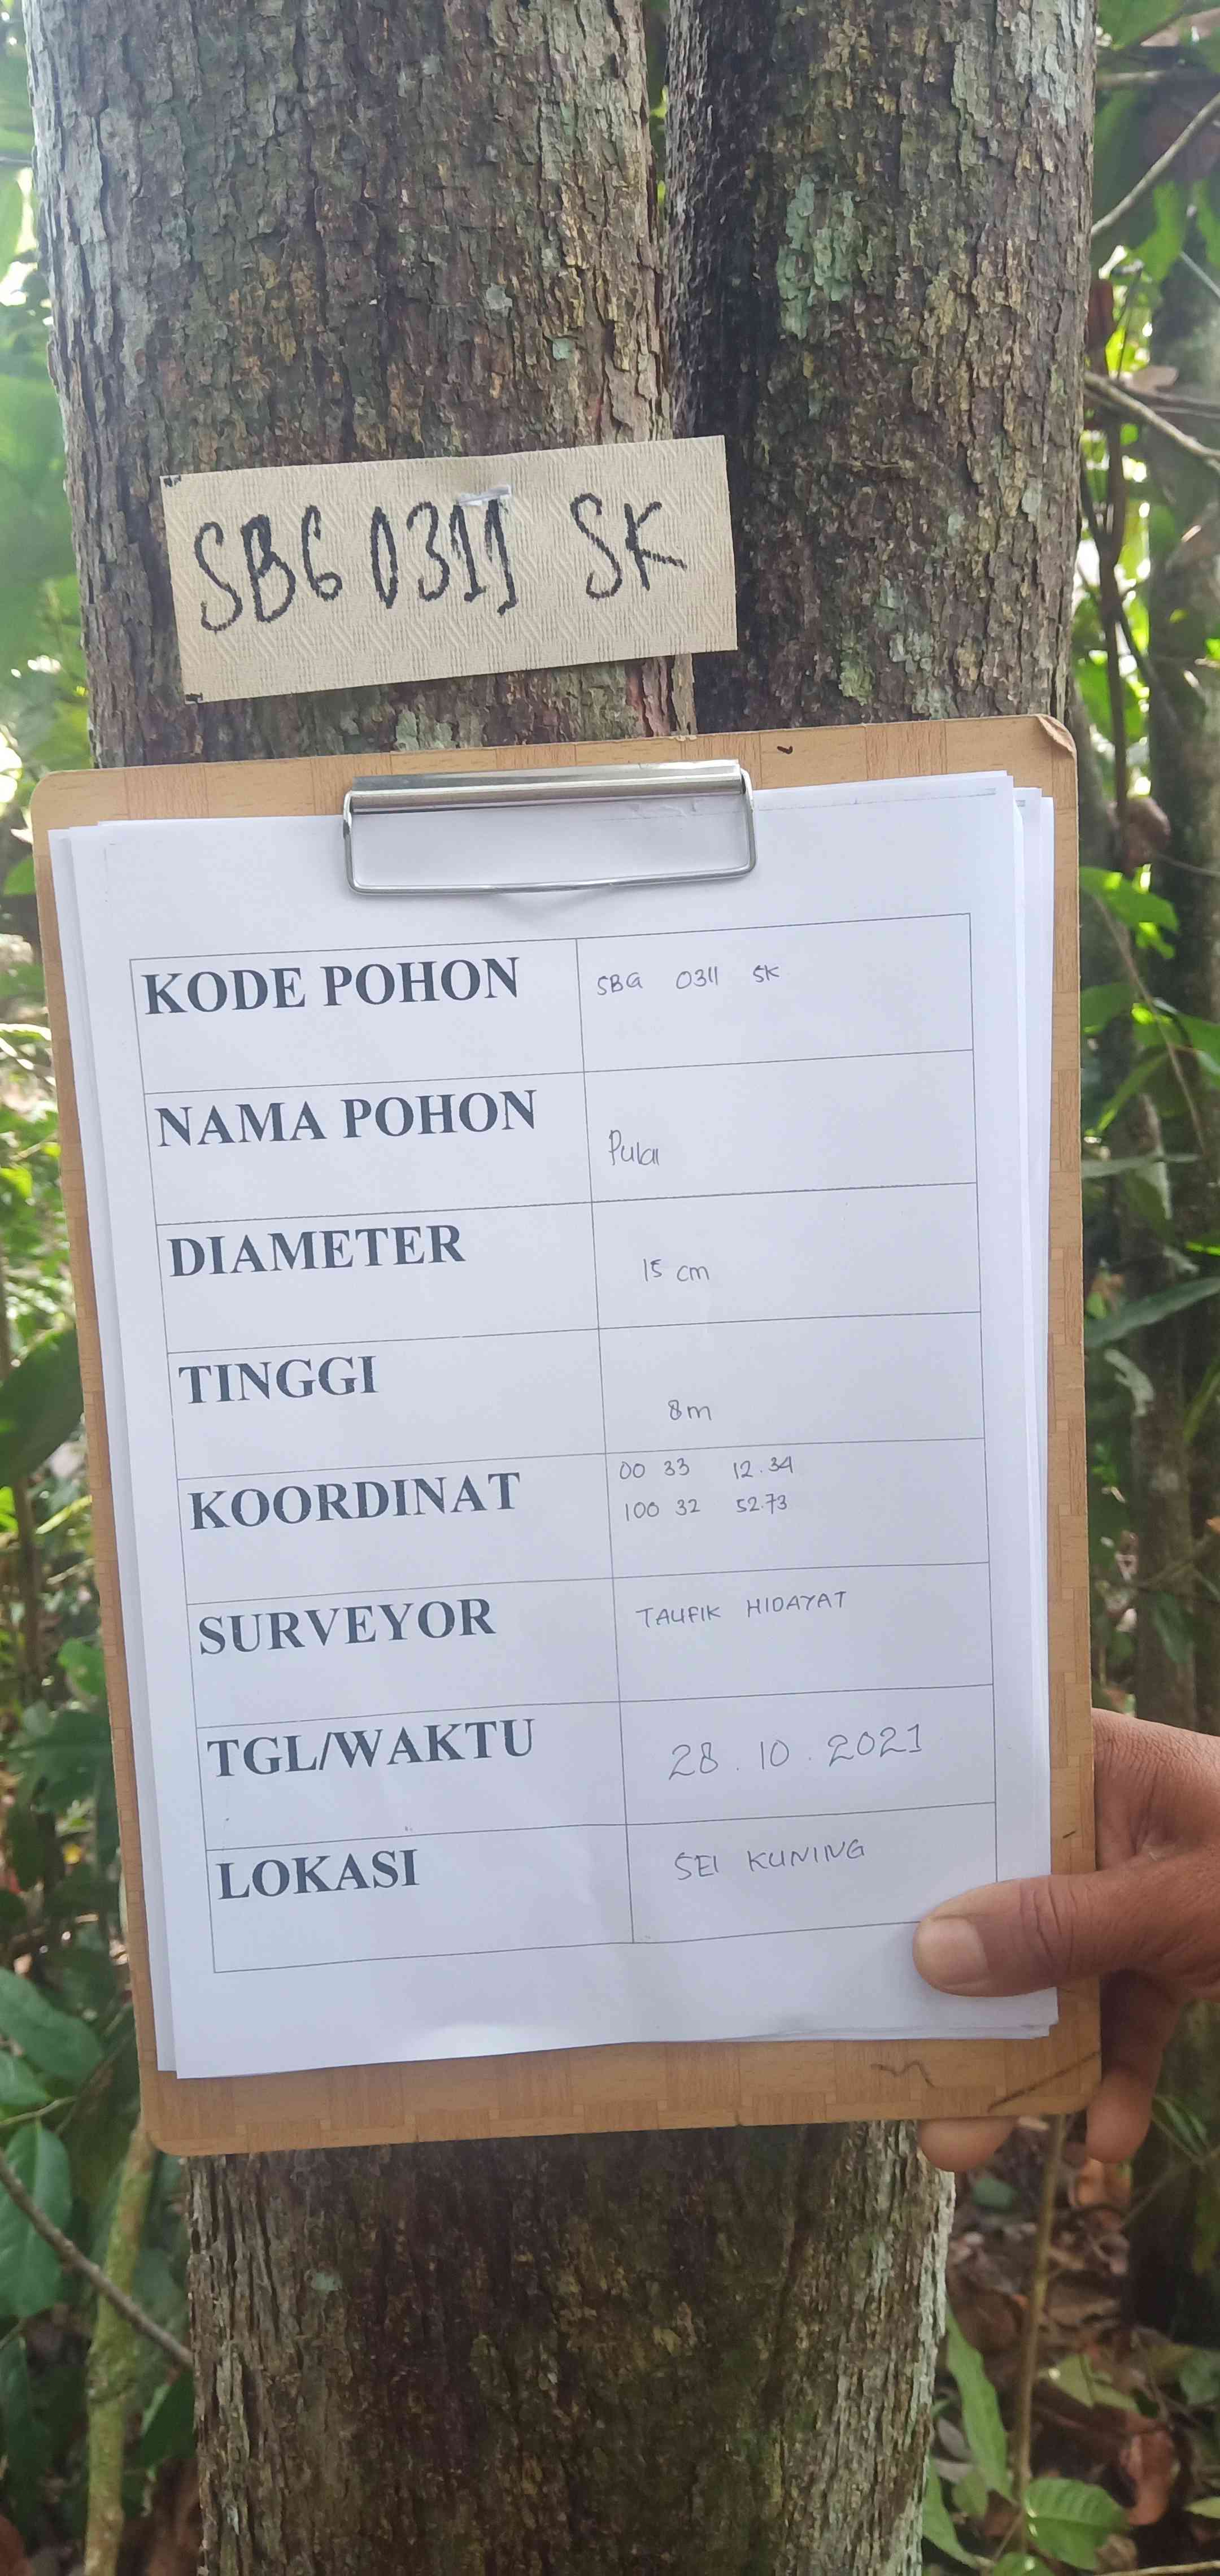 SBG 0311 SK
KODE POHON SBG 0311 SK
NAMA POHON Pulai
DIAMETER 15 cm
TINGGI 8m
KOORDINAT 00 33 12.34
100 32 52.73
SURVEYOR TAUFIK HIDAYAT
TGL/WAKTU 28.10.2021
LOKASI SEI KUNING